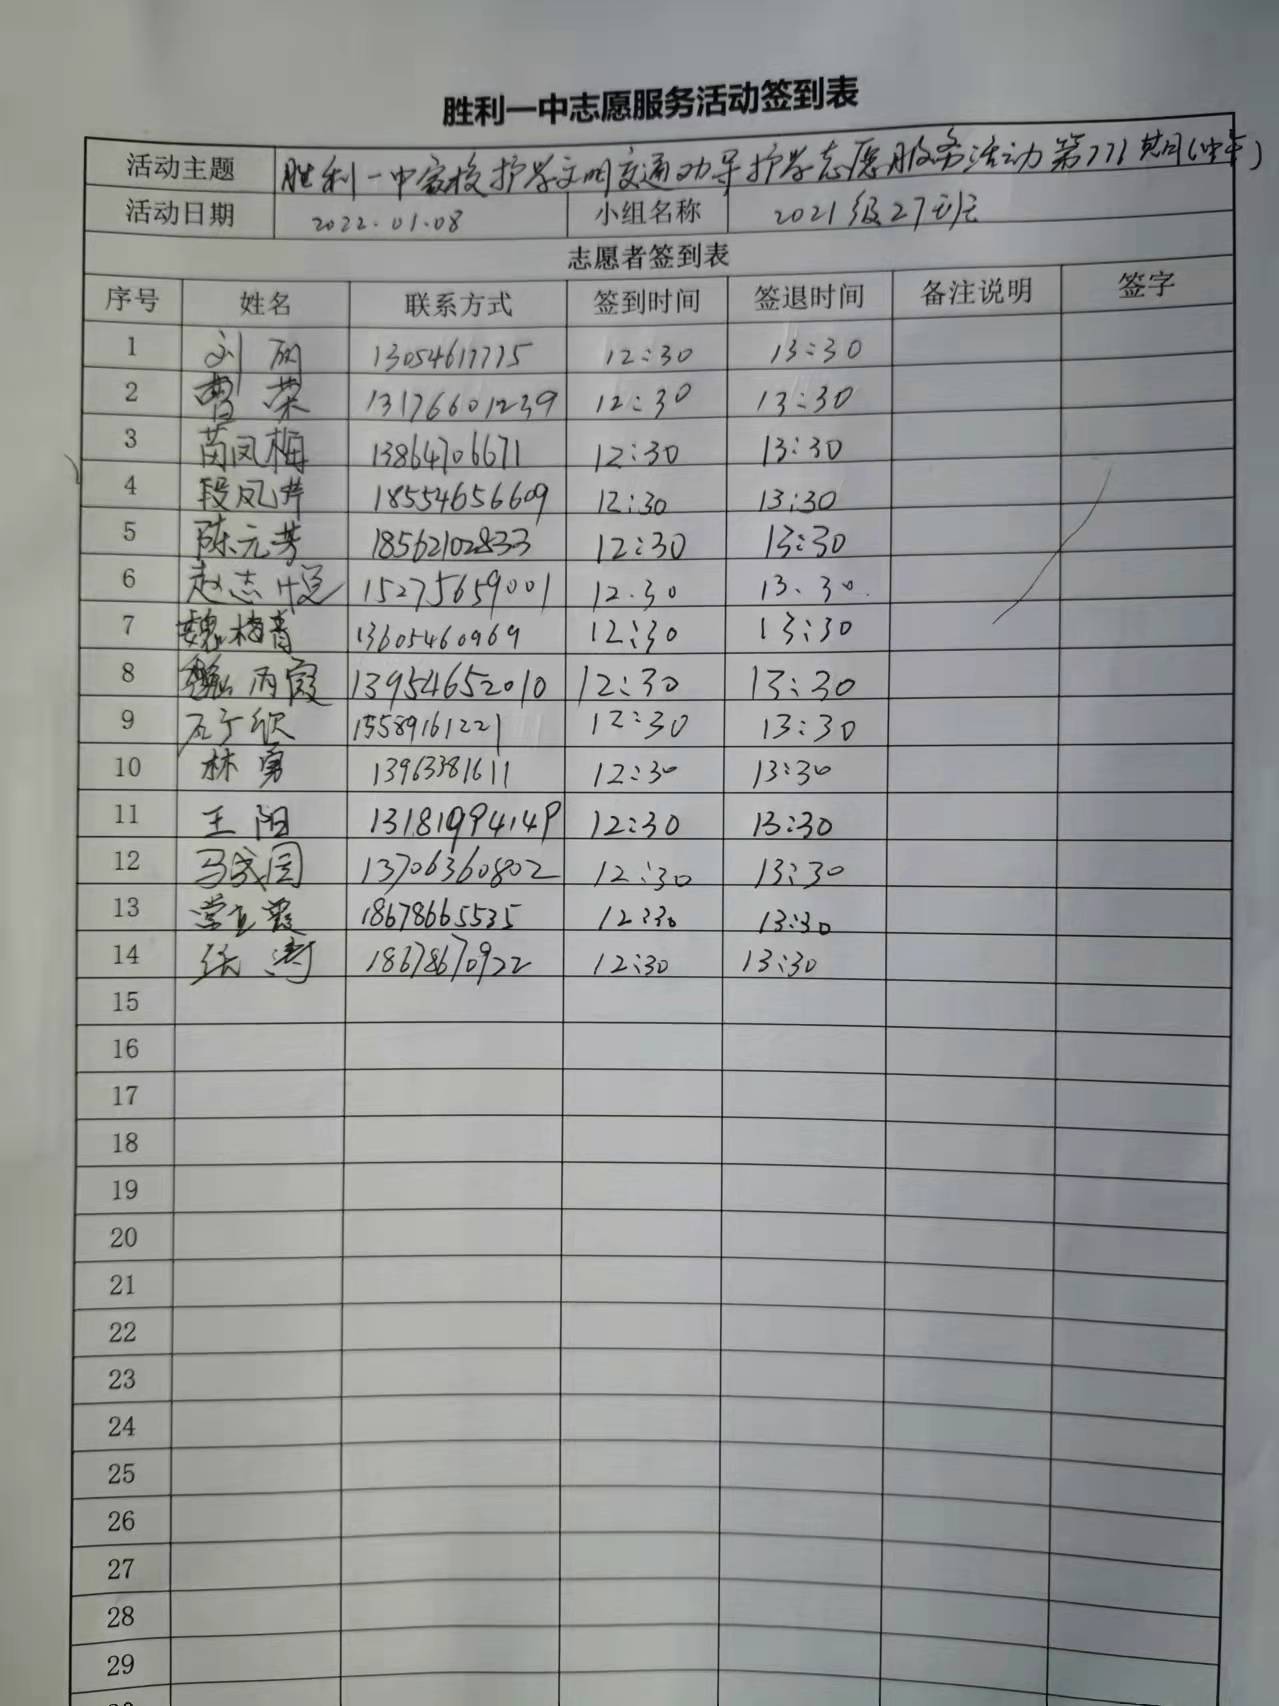 胜利一中志愿服务活动签到表
活动主题 胜利一中家校护学文明交通劝导护学志愿服务活动第771期(中午)
活动日期 2022.01.08 小组名称 2021级27班
志愿者签到表
序号 姓名 联系方式 签到时间 签退时间 备注说明 签字
1 刘 13054617715 12:30 13:30
2 曹荣 13176601239 12:30 13:30
3 苘凤梅 13864706671 12:30 13:30
4 段凤 18554656609 12:30 13:30
5 陈元芳 18562102833 12:30 13:30
6 赵志悦 15275659001 12.30 13.30.
7 魏梅青 13605460969 12:30 13:30
8 魏丙霞 13954652010 12:30 13:30
9 石于欣 15589161221 12:30 13:30
10 林勇 13963381611 12:30 13:30
11 王阳 13181994149 12:30 13:30
12 马成国 13706360802 12:30 13:30
13 常立霞 18678665535 12:30 13:30
14 任涛 18678670922 12:30 13:30
15
16
17
18
19
20
21
22
23
24
25
26
27
28
29